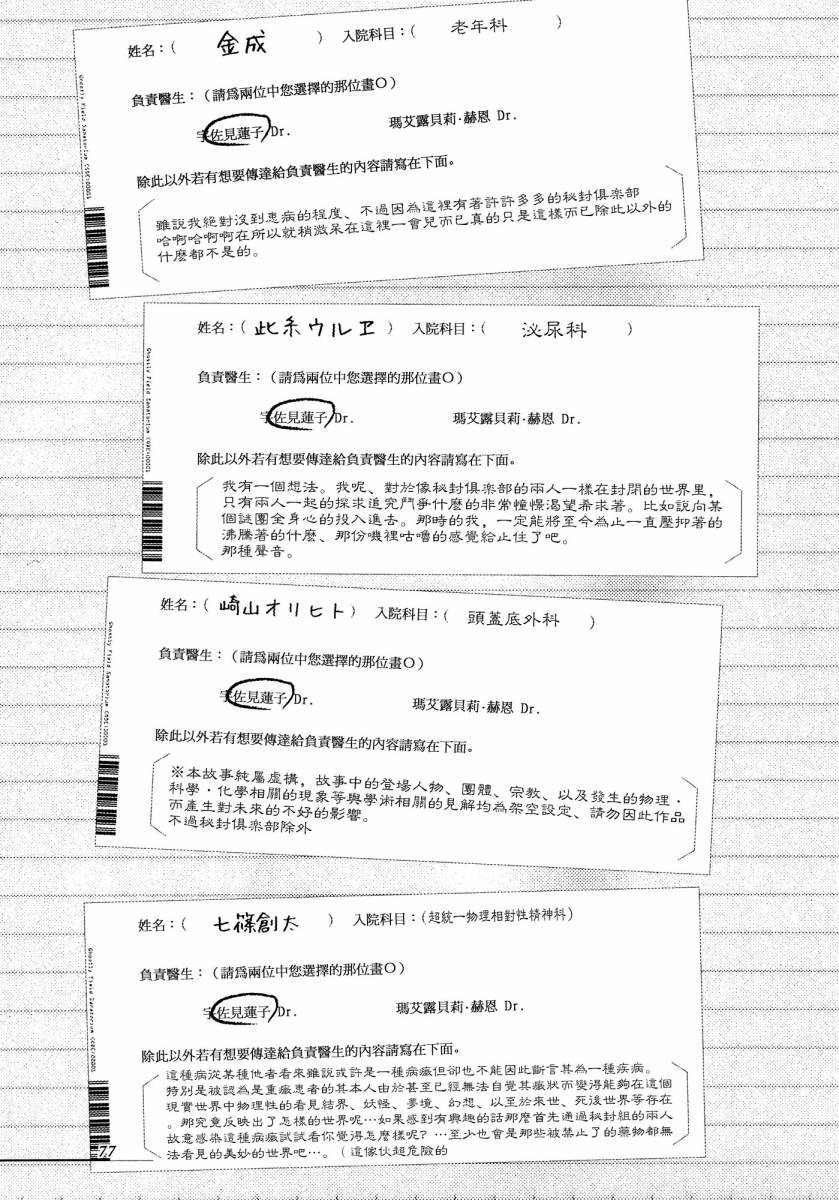 姓名：( 金成 ) 入院科目：( 老年科 )
負責醫生：（請爲兩位中您選擇的那位畫O）
宇佐見蓮子 Dr. 瑪艾露貝莉·赫恩 Dr.
除此以外若有想要傳達給負責醫生的內容請寫在下面。
雖說我絕對沒到患病的程度、不過因為這裡有著許許多多的秘封俱楽部
哈啊哈啊啊在所以就稍微呆在這裡一會兒而已真的只是這樣而已除此以外的
什麼都不是的。
姓名：( 此糸ウルヱ ) 入院科目：( 泌尿科 )
負責醫生：（請爲兩位中您選擇的那位畫O）
宇佐見蓮子 Dr. 瑪艾露貝莉·赫恩 Dr.
除此以外若有想要傳達給負責醫生的內容請寫在下面。
我有一個想法。我呢、對於像秘封俱楽部的兩人一樣在封閉的世界里，
只有兩人一起的探求追究鬥爭什麼的非常憧憬渴望希求著。比如說向某
個謎團全身心的投入進去。那時的我，一定能將至今為止一直壓抑著的
沸騰著的什麼、那份嘰裡咕嚕的感覺給止住了吧。
那種聲音。
姓名：( 崎山オリヒト ) 入院科目：( 頭蓋底外科 )
負責醫生：（請爲兩位中您選擇的那位畫O）
宇佐見蓮子 Dr. 瑪艾露貝莉·赫恩 Dr.
除此以外若有想要傳達給負責醫生的內容請寫在下面。
※本故事純屬虛構，故事中的登場人物、團體、宗教、以及發生的物理・
科學・化學相關的現象等與學術相關的見解均為架空設定、請勿因此作品
而產生對未來的不好的影響。
不過秘封俱楽部除外
姓名：( 七篠創太 ) 入院科目：(超統一物理相對性精神科)
負責醫生：（請爲兩位中您選擇的那位畫O）
宇佐見蓮子 Dr. 瑪艾露貝莉·赫恩 Dr.
除此以外若有想要傳達給負責醫生的內容請寫在下面。
這種病從某種他者看來雖說或許是一種病癥但卻也不能因此斷言其為一種疾病。
特別是被認為是重癥患者的其本人由於甚至已經無法自覺其癥狀而變得能夠在這個
現實世界中物理性的看見結界、妖怪、夢境、幻想、以至於來世、死後世界等存在
。那究竟反映出了怎樣的世界呢…如果感到有興趣的話那麼首先通過秘封組的兩人
故意感染這種病癥試試看你覺得怎麼樣呢？…至少也會是那些被禁止了的藥物都無
法看見的美妙的世界吧…。（這傢伙超危險的
77